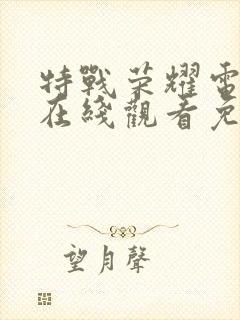 特戰荣耀電
在綫觀看免
望月聲